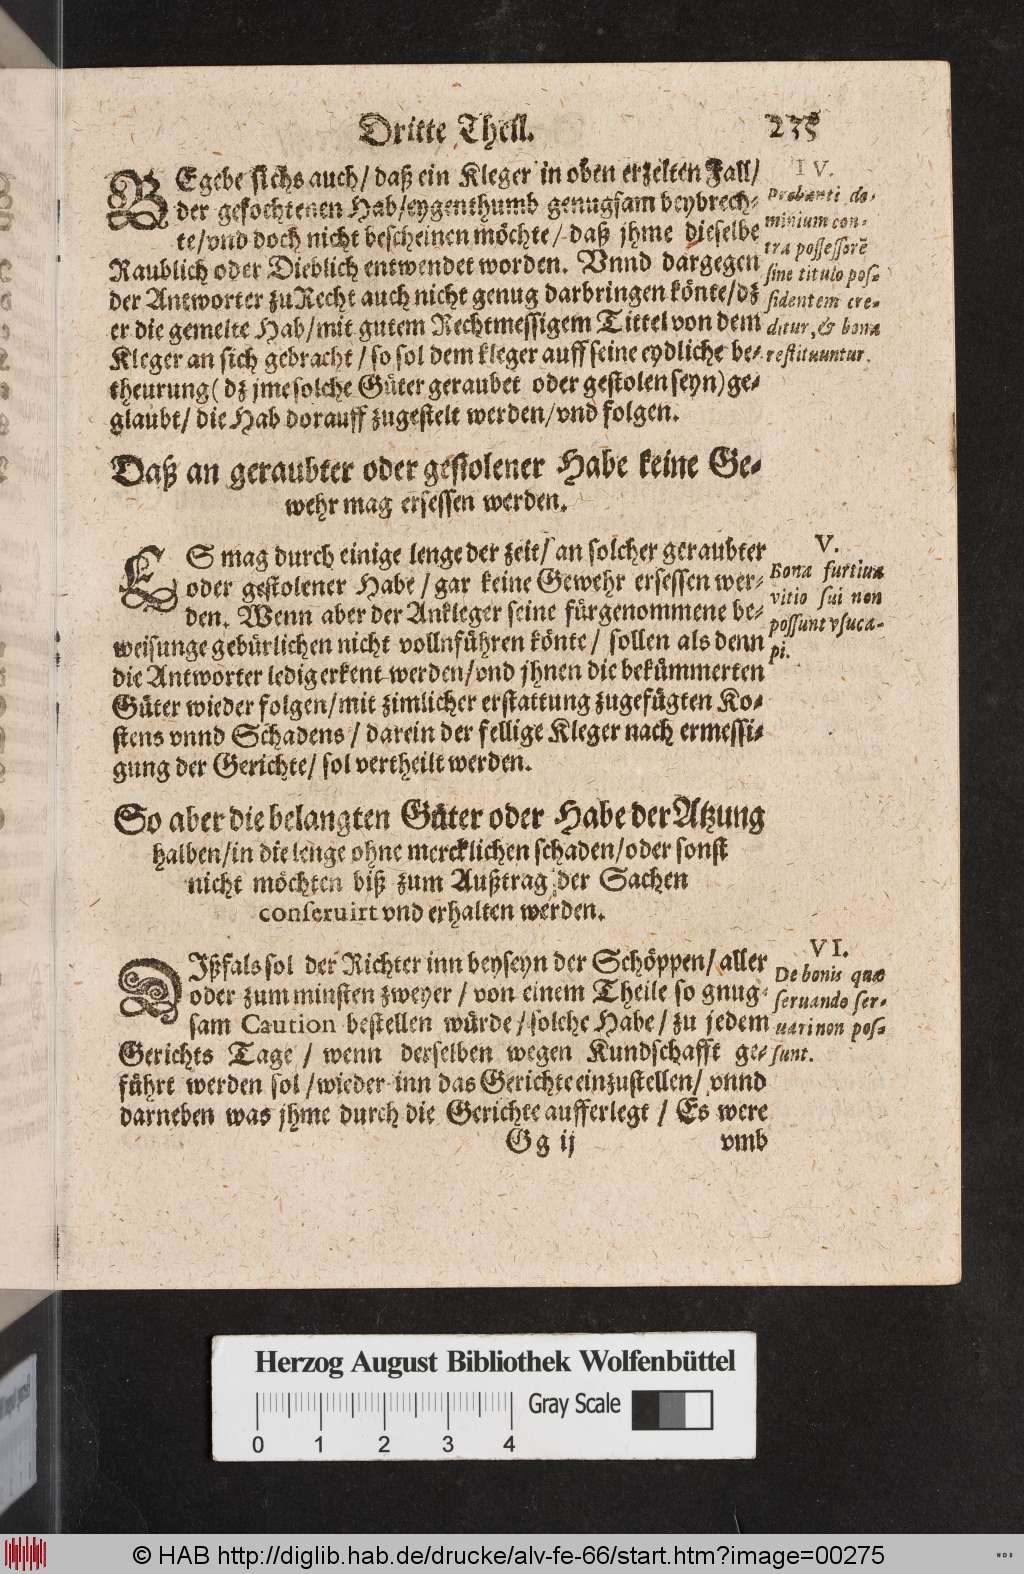 Dritte Theil. 235
BEgebe sichs auch/ daß ein Kleger in oben erzelten Fall/
der gefochtenen Hab/eygenthumb genugsam beybrech-
te/vnd doch nicht bescheinen möchte/ daß jhme dieselbe
Raublich oder Dieblich entwendet worden. Vnnd dargegen
der Antworter zu Recht auch nicht genug darbringen könte/dz
er die gemelte Hab/mit gutem Rechtmessigem Tittel von dem
Kleger an sich gebracht/ so sol dem kleger auff seine eydliche be-
theurung(dz jme solche Güter geraubet oder gestolen seyn)ge-
glaubt/ die Hab dorauff zugestelt werden/vnd folgen.
IV.
Probanti do-
minium con-
tra possessorẽ
sine titulo pos-
sidentem cre-
ditur, & bona
restituuntur.
Daß an geraubter oder gestolener Habe keine Ge-
wehr mag ersessen werden.
ES mag durch einige lenge der zeit/ an solcher geraubter
oder gestolener Habe/ gar keine Gewehr ersessen wer-
den. Wenn aber der Ankleger seine fürgenommene be-
weisunge gebürlichen nicht vollnführen könte/ sollen als denn
die Antworter ledig erkent werden/vnd jhnen die bekümmerten
Güter wieder folgen/mit zimlicher erstattung zugefügten Ko-
stens vnnd Schadens/ darein der fellige Kleger nach ermessi-
gung der Gerichte/ sol vertheilt werden.
V.
Bona furtiua
vitio sui non
possunt vsuca-
pi.
So aber die belangten Güter oder Habe der Atzung
halben/in die lenge ohne mercklichen schaden/oder sonst
nicht möchten biß zum Außtrag der Sachen
conseruirt vnd erhalten werden.
DIßfals sol der Richter inn beyseyn der Schöppen/ aller
oder zum minsten zweyer/ von einem Theile so gnug-
sam Caution bestellen würde/ solche Habe/ zu jedem
Gerichts Tage/ wenn derselben wegen Kundschafft ge-
führt werden sol/wieder inn das Gerichte einzustellen/ vnnd
darneben was jhme durch die Gerichte aufferlegt/ Es were
VI.
De bonis quæ
seruando ser-
uari non pos-
sunt.
Gg ij vmb
Herzog August Bibliothek Wolfenbüttel
Gray Scale
0 1 2 3 4
© HAB http://diglib.hab.de/drucke/alv-fe-66/start.htm?image=00275